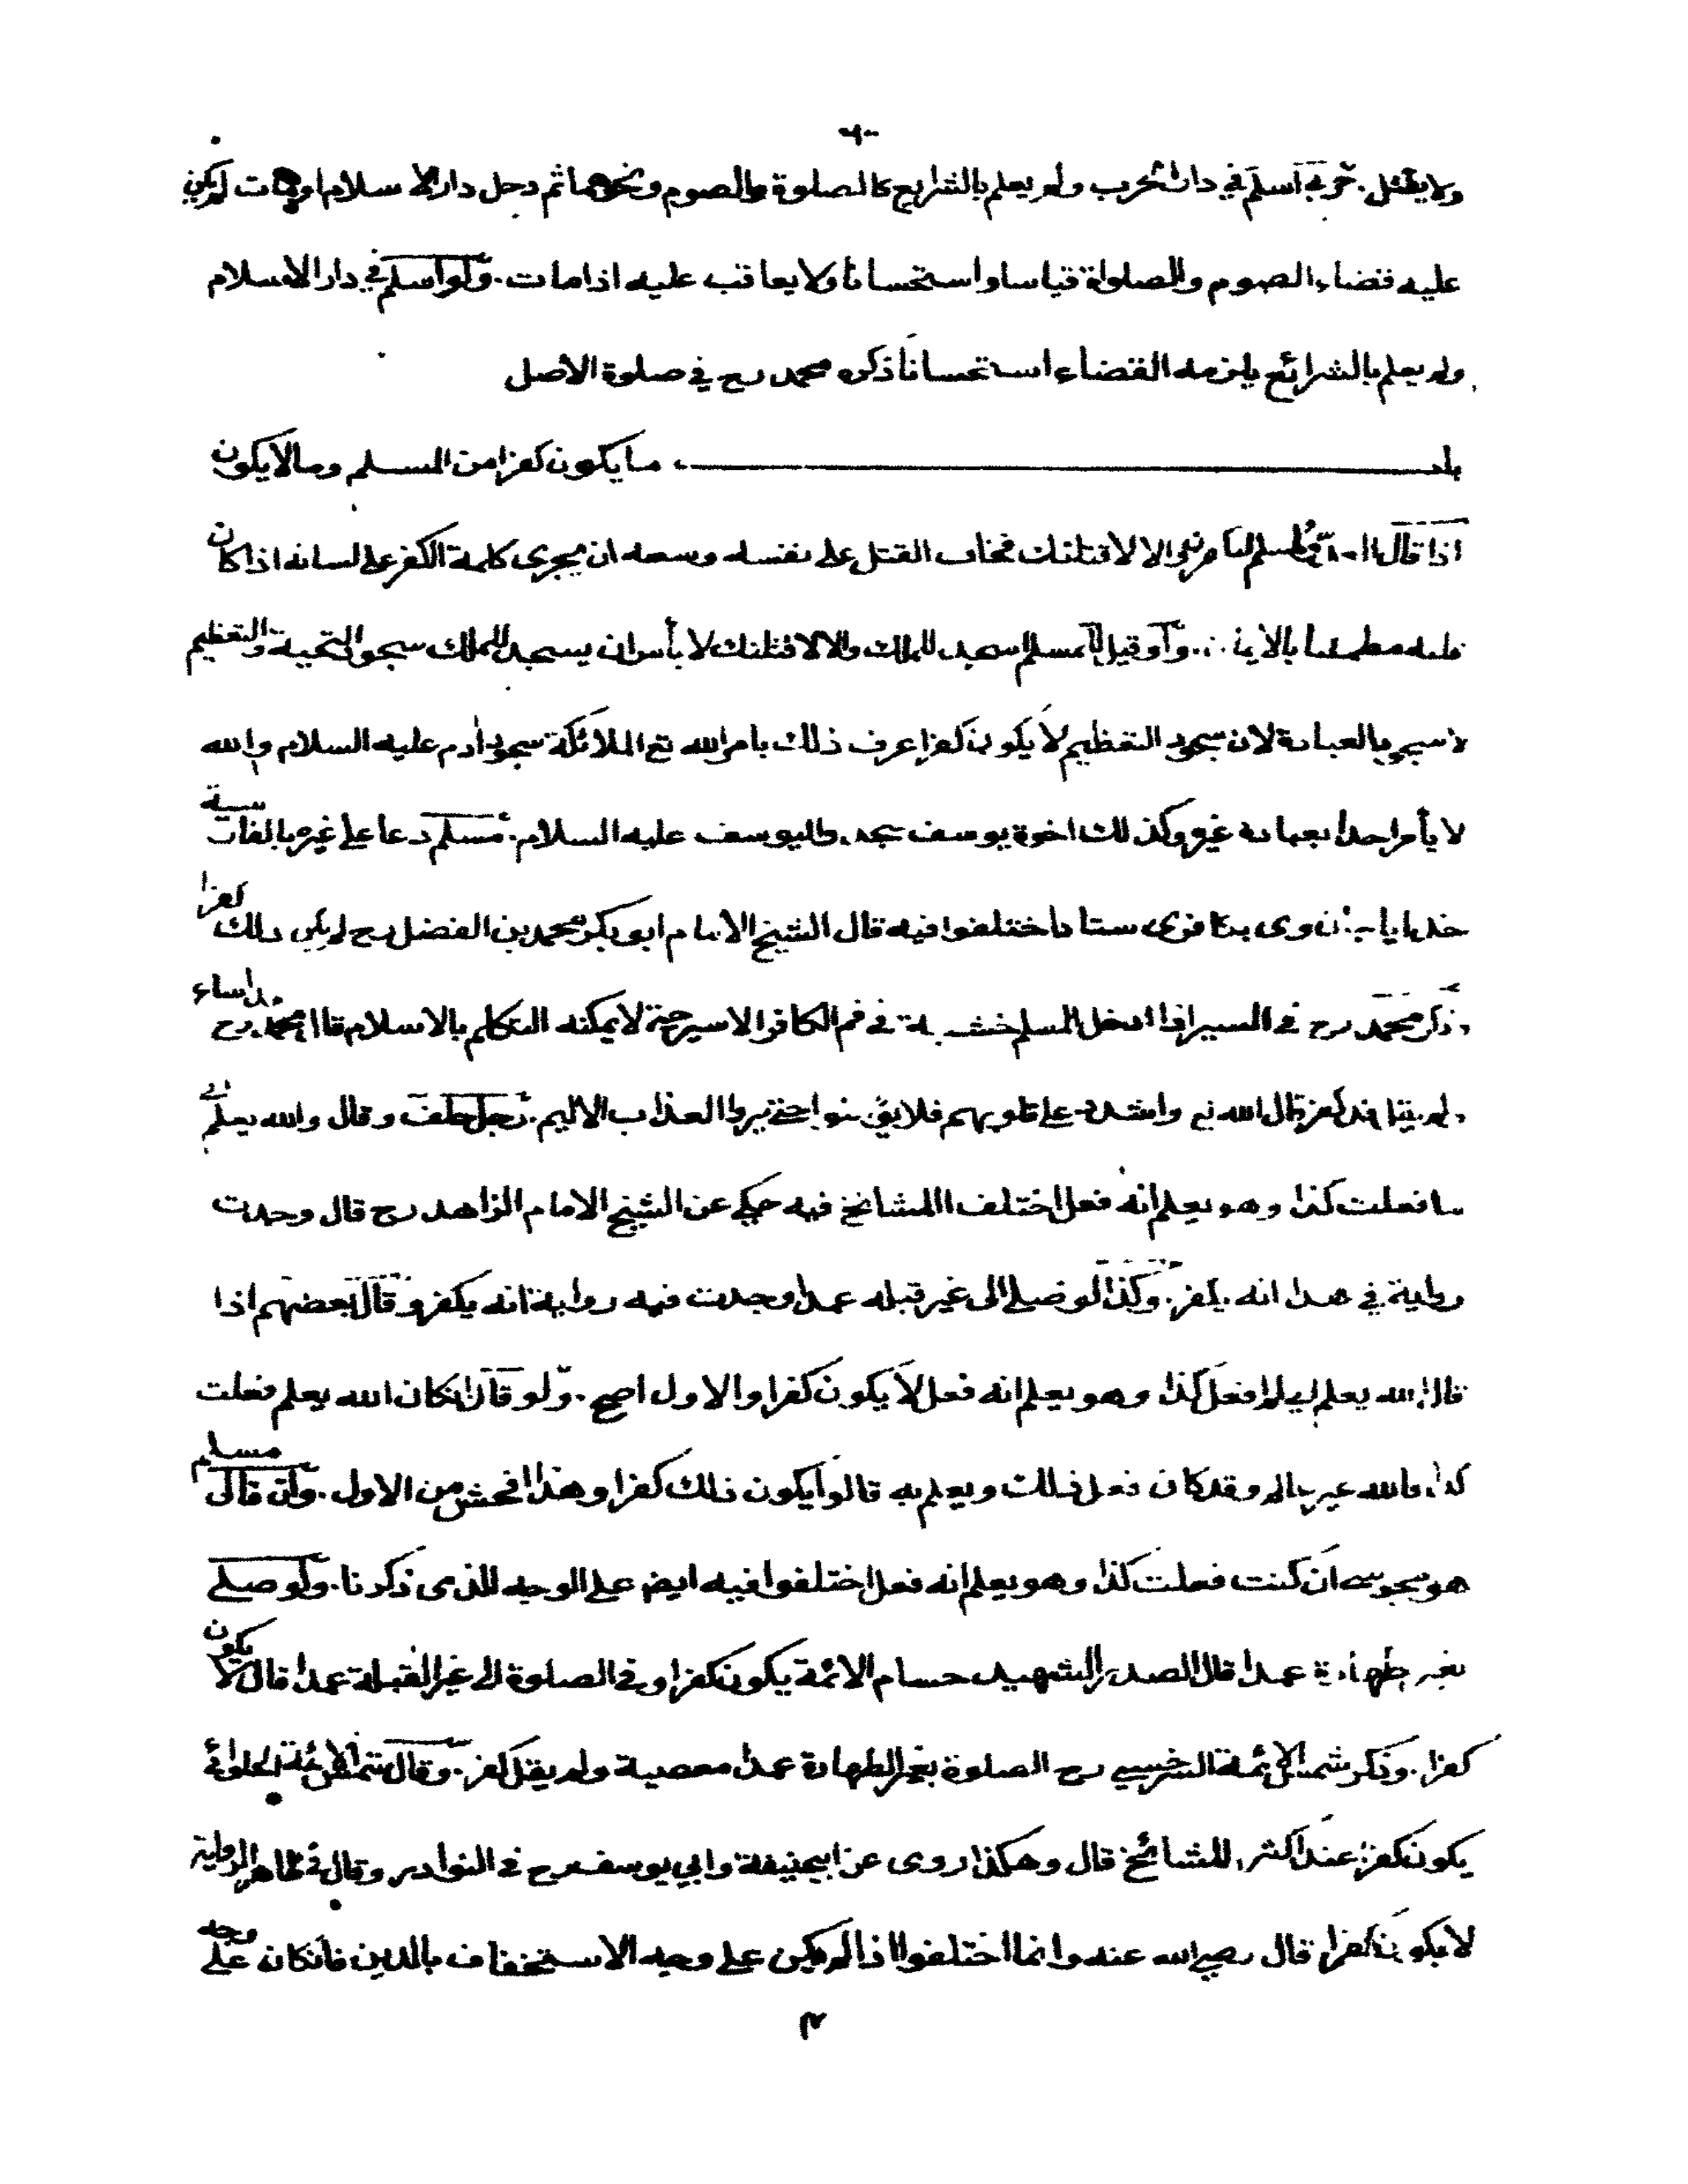 ولا يقتل. حربي اسلم في دار الحرب ولم يعلم بالشرايع كالصلوة والصوم ونحوهما ثم دخل دار الاسلام او مات لم يكن
عليه قضاء الصوم والصلوة قياسا واستحسانا ولا يعاقب عليه اذا مات. ولو اسلم في دار الاسلام
ولم يعلم بالشرائع يلزمه القضاء استحسانا ذكره محمد رح في صلوة الاصل
باب ما يكون كفرا من المسلم وما لا يكون
اذا قال لمسلم والا لاقتلنك فخاف القتل على نفسه وسعه ان يجري كلمة الكفر على لسانه اذا كان
قلبه مطمئنا بالايمان. ولو قيل لمسلم اسجد للملك والا لاقتلنك لا بأس ان يسجد للملك سجود التحية والتعظيم
لا سجود العبادة لان سجود التعظيم لا يكون كفرا عرف ذلك بامر الله تع الملائكة بسجود ادم عليه السلام والله
لا يأمر احدا بعبادة غيره وكذلك اخوة يوسف سجدوا ليوسف عليه السلام. مسلم دعا على غيره بالفارسية
خدايا جان وى بكافرى ستان اختلفوا فيه قال الشيخ الامام ابو بكر محمد بن الفضل رح لم يكن ذلك كفرا
ذكر محمد رح في السير اذا ادخل المسلم خشبة في فم الكافر الاسير حتى لا يمكنه التكلم بالاسلام قال محمد رح اساء
ولم يقل قد كفر قال الله تع واشدد على قلوبهم فلا يؤمنوا حتى يروا العذاب الاليم. رجل حلف وقال والله يعلم اني
ما فعلت كذا وهو يعلم انه فعل اختلف المشائخ فيه حكي عن الشيخ الامام الزاهد رح قال وجدت
رواية في هذا انه يكفر. وكذا لو صلى الى غير قبله عمدا وجدت فيه رواية انه يكفر وقال بعضهم اذا
قال الله يعلم اني لم افعل كذا وهو يعلم انه فعل لا يكون كفرا والاول اصح. ولو قال ان كان الله يعلم فعلت
كذا فالله عير عالم وقد كان فعل ذلك ويعلم به قالوا يكون ذلك كفرا وهذا افحش من الاول. وان قال مسلم
هو مجوسي ان كنت فعلت كذا وهو يعلم انه فعل اختلفوا فيه ايض على الوجه الذي ذكرنا. ولو صلى
بغير طهارة عمدا قال الصدر الشهيد حسام الائمة يكون كفرا وفي الصلوة الى غير القبلة عمدا قال لا يكون
كفرا. وذكر شمس الائمة السرخسي رح الصلوة بغير الطهارة عمدا معصية ولم يقل كفر. وقال شمس الائمة الحلوائي
يكون كفرا عند اكثر المشائخ قال وهكذا روى عن ابيحنيفة وابي يوسف رح في النوادر وقال في ظاهر الرواية
لا يكون كفرا قال رضي الله عنه وانما اختلفوا اذا لم يكن على وجه الاستخفاف بالدين فان كان على وجه